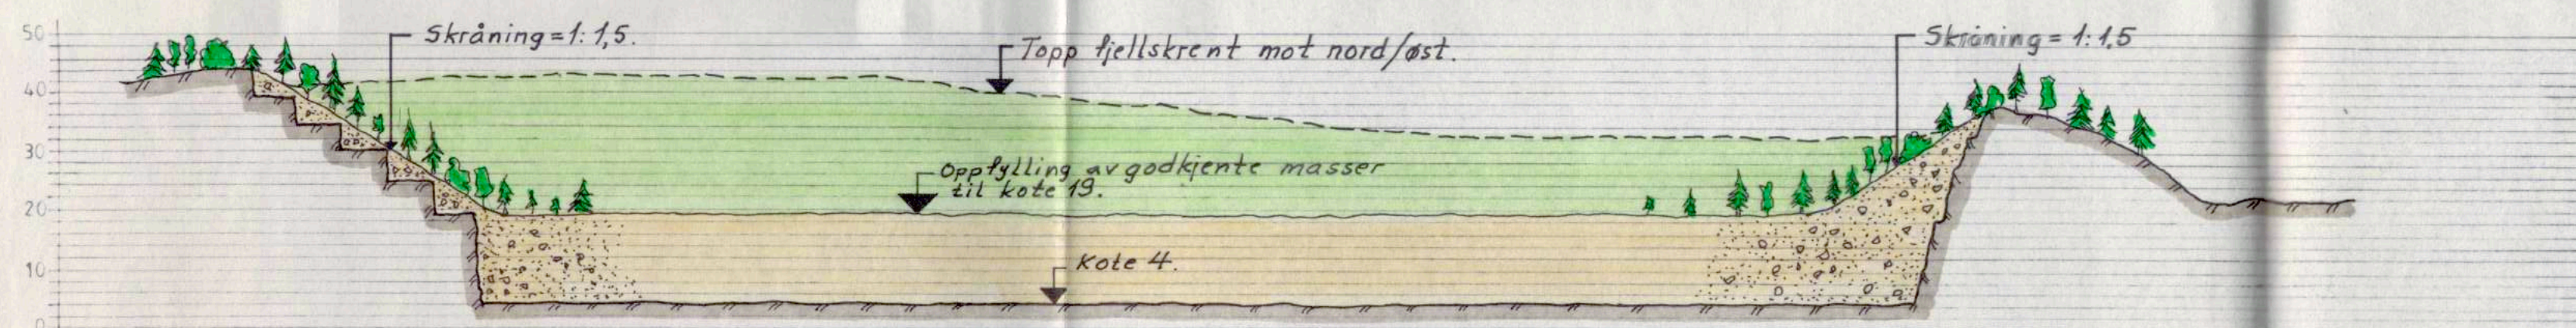 50
40
30
20
10
0
Skråning = 1:1,5.
Topp fjellskrent mot nord/øst.
Skråning = 1:1,5
Oppfylling av godkjente masser
til kote 19.
Kote 4.